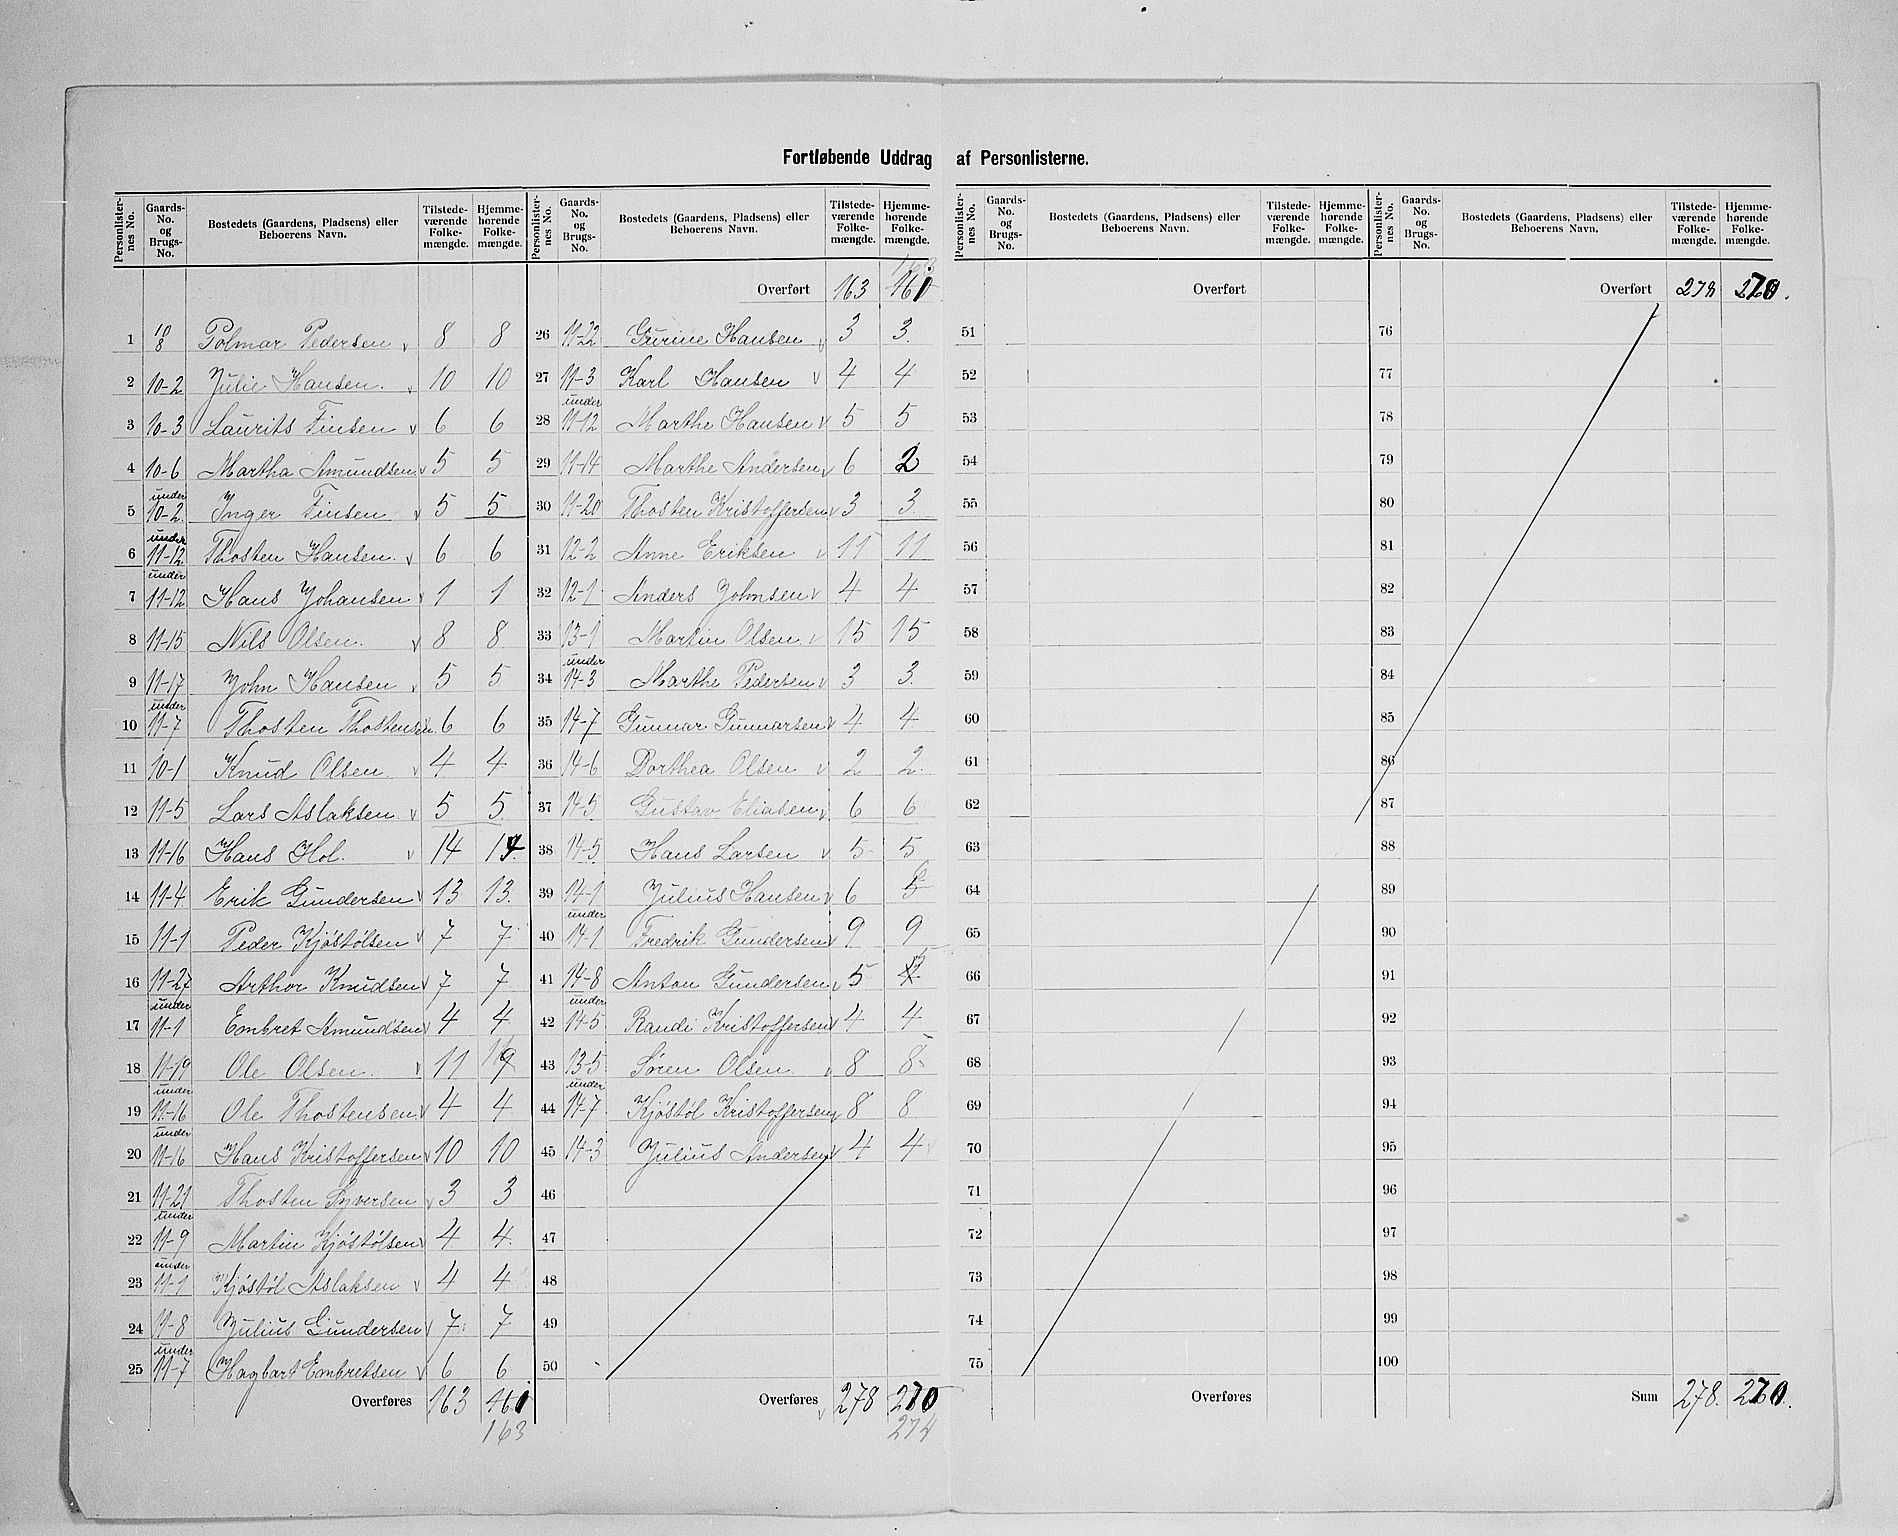 Fortløbende Uddrag af Personlisterne.
Personlister-nes No. | Gaards-No. og Brugs-No. | Bostedets (Gaardens, Pladsens) eller Beboerens Navn. | Tilstede-værende Folke-mængde. | Hjemme-hørende Folke-mængde.
1 10 8 Polmar Pedersen v 8 8
2 10-2 Julie Hansen. v 10 10
3 10-3 Laurits Finsen v 6 6
4 10-6 Martha Amundsen v 5 5
5 under 10-2 Inger Finsen v 5 5
6 under 11-12 Thosten Hansen. v 6 6
7 under 11-12 Hans Johansen v 1 1
8 11-15 Nils Olsen. v 8 8
9 11-17 John Hansen v 5 5
10 under 11-7 Thosten Thostensen. v 6 6
11 10-1 Knud Olsen. v 4 4
12 11-5 Lars Aslaksen. v 5 5.
13 11-16 Hans Hol. v 14 14
14 11-4 Erik Gundersen v 13 13.
15 11-1 Peder Kjøstølsen v 7 7
16 11-27 Arthor Knudsen v 7 7
17 under 11-1 Embret Amundsen v 4 4
18 11-19 Ole Olsen. v 11 9
19 under 11-16 Ole Thostensen v 4 4
20 under 11-16 Hans Kristoffersen v 10 10
21 11-21 Thosten Syversen v 3 3
22 under 11-9 Martin Kjøstølsen v 4 4.
23 under 11-1 Kjøstøl Aslaksen v 4 4
24 11-8 Julius Gundersen v 7 7
25 under 11-7 Hagbart Embretsen v 6 6
Overføres 163 161
163
Personlister-nes No. | Gaards-No. og Brugs-No. | Bostedets (Gaardens, Pladsens) eller Beboerens Navn. | Tilstede-værende Folke-mængde. | Hjemme-hørende Folke-mængde.
163
Overført 163 161
26 11-22 Gurine Hansen v 3 3.
27 11-3 Karl Hansen v 4 4
28 under 11-12 Marthe Hansen v 5 5
29 11-14 Marthe Andersen v 6 2
30 11-20 Thosten Kristoffersen v 3 3.
31 12-2 Anne Eriksen v 11 11
32 12-1 Anders Johnsen v 4 4
33 13-1 Martin Olsen. v 15 15
34 under 14-3 Marthe Pedersen v 3 3.
35 14-7 Gunnar Gunnarsen v 4 4
36 14-6 Dorthea Olsen v 2 2.
37 14-5 Gustav Eliasen v 6 6
38 14-5 Hans Larsen v 5 5
39 14-1 Julius Hansen v 6 5 6
40 under 14-1 Fredrik Gundersen v 9 9
41 14-8 Anton Gundersen v 5 4 5
42 under 14-5 Randi Kristoffersen v 4 4
43 13-5 Søren Olsen v 8 8
44 under 14-7 Kjøstøl Kristoffersen v 8 8
45 14-3 Julius Andersen v 4 4
46
47
48
49
50
Overføres v 278 270
274
Personlister-nes No. | Gaards-No. og Brugs-No. | Bostedets (Gaardens, Pladsens) eller Beboerens Navn. | Tilstede-værende Folke-mængde. | Hjemme-hørende Folke-mængde.
Overført
51
52
53
54
55
56
57
58
59
60
61
62
63
64
65
66
67
68
69
70
71
72
73
74
75
Overføres
Personlister-nes No. | Gaards-No. og Brugs-No. | Bostedets (Gaardens, Pladsens) eller Beboerens Navn. | Tilstede-værende Folke-mængde. | Hjemme-hørende Folke-mængde.
Overført 278 270.
76
77
78
79
80
81
82
83
84
85
86
87
88
89
90
91
92
93
94
95
96
97
98
99
100
Sum 278. 270.